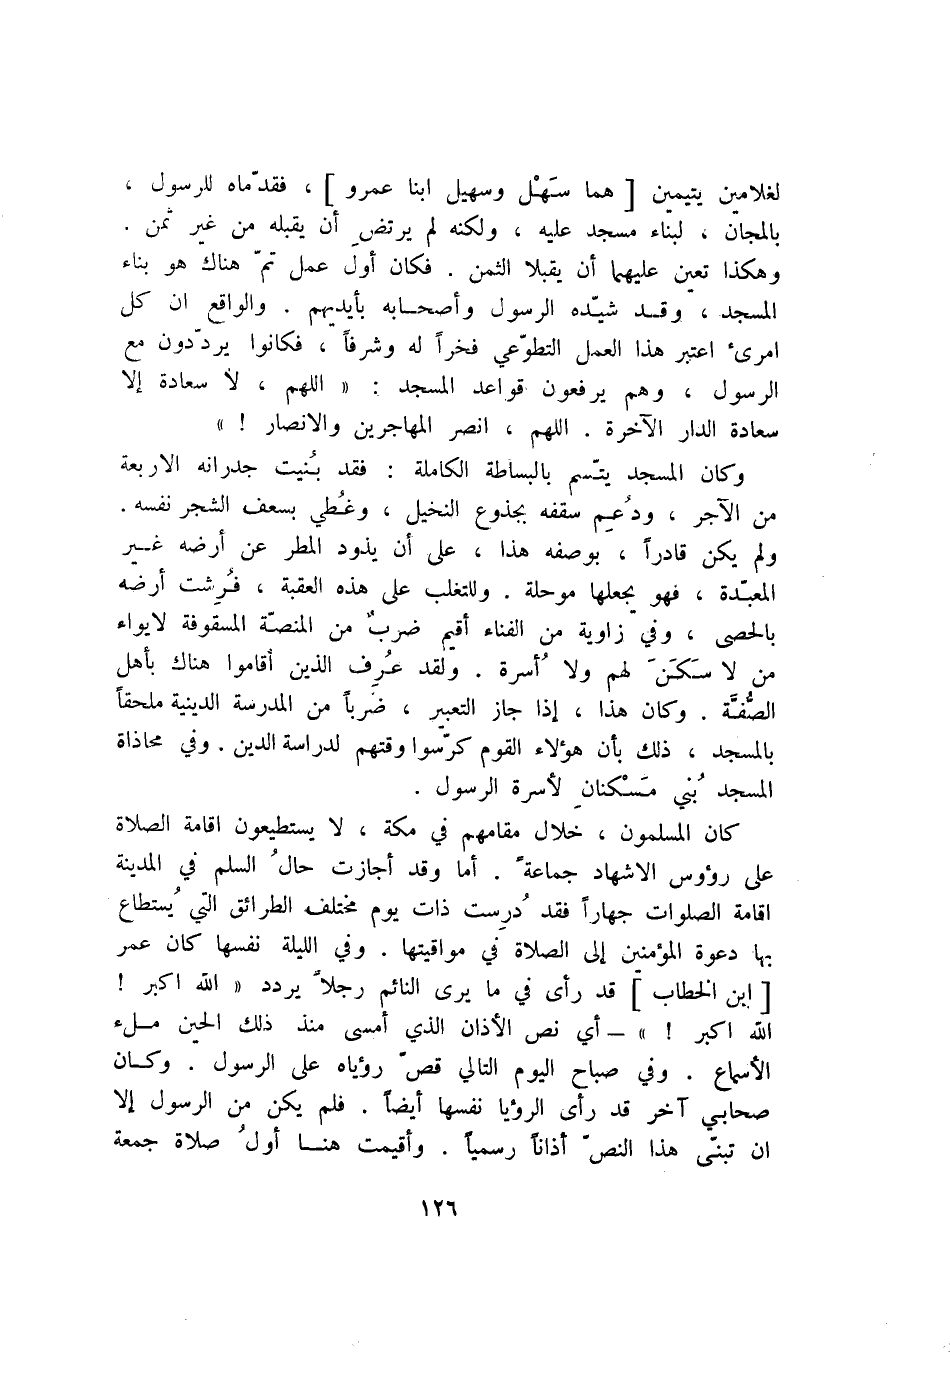 لغلامين يتيمين [ هما سَهْل وسهيل ابنا عمرو ] ، فقدّماه للرسول ،
بالمجان ، لبناء مسجد عليه ، ولكنه لم يرتضِ أن يقبله من غير ثمن .
وهكذا تعين عليهما أن يقبلا الثمن . فكان أول عمل تمّ هناك هو بناء
المسجد ، وقد شيّده الرسول وأصحابه بأيديهم . والواقع ان كل
امرىء اعتبر هذا العمل التطوّعي فخراً له وشرفاً ، فكانوا يردّدون مع
الرسول ، وهم يرفعون قواعد المسجد : « اللهم ، لا سعادة إلا
سعادة الدار الآخرة . اللهم ، انصر المهاجرين والانصار ! »
وكان المسجد يتّسم بالبساطة الكاملة : فقد بُنيت جدرانه الاربعة
من الآجر ، ودُعِم سقفه بجذوع النخيل ، وغُطي بسعف الشجر نفسه .
ولم يكن قادراً ، بوصفه هذا ، على أن يذود المطر عن أرضه غير
المعبّدة ، فهو يجعلها موحلة . وللتغلب على هذه العقبة ، فُرِشت أرضه
بالحصى ، وفي زاوية من الفناء أقيم ضربٌ من المنصّة المسقوفة لايواء
من لا سَكَنَ لهم ولا أُسرة . ولقد عُرِف الذين أقاموا هناك بأهل
الصُّفَّة . وكان هذا ، إذا جاز التعبير ، ضرباً من المدرسة الدينية ملحقاً
بالمسجد ، ذلك بأن هؤلاء القوم كرّسوا وقتهم لدراسة الدين . وفي محاذاة
المسجد بُني مَسْكنانِ لأسرة الرسول .
كان المسلمون ، خلال مقامهم في مكة ، لا يستطيعون اقامة الصلاة
على رؤوس الاشهاد جماعةً . أما وقد أجازت حالُ السلم في المدينة
اقامة الصلوات جهاراً فقد دُرِست ذات يوم مختلف الطرائق التي يُستطاع
بها دعوة المؤمنين إلى الصلاة في مواقيتها . وفي الليلة نفسها كان عمر
[ ابن الخطاب ] قد رأى في ما يرى النائم رجلاً يردد « الله اكبر !
الله اكبر ! » – أي نص الأذان الذي أمسى منذ ذلك الحين ملء
الأسماع . وفي صباح اليوم التالي قصّ رؤياه على الرسول . وكان
صحابي آخر قد رأى الرؤيا نفسها أيضاً . فلم يكن من الرسول إلا
ان تبنّى هذا النصّ أذاناً رسمياً . وأقيمت هنا أولُ صلاة جمعة
١٢٦